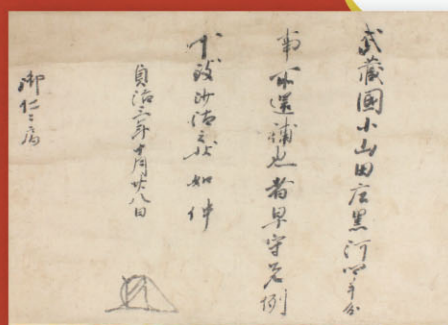 武蔵國小山田庄黒河四半分
事所還補也者早守先例
可致沙汰之状如件
貞治三年十月廿八日
御仁々局